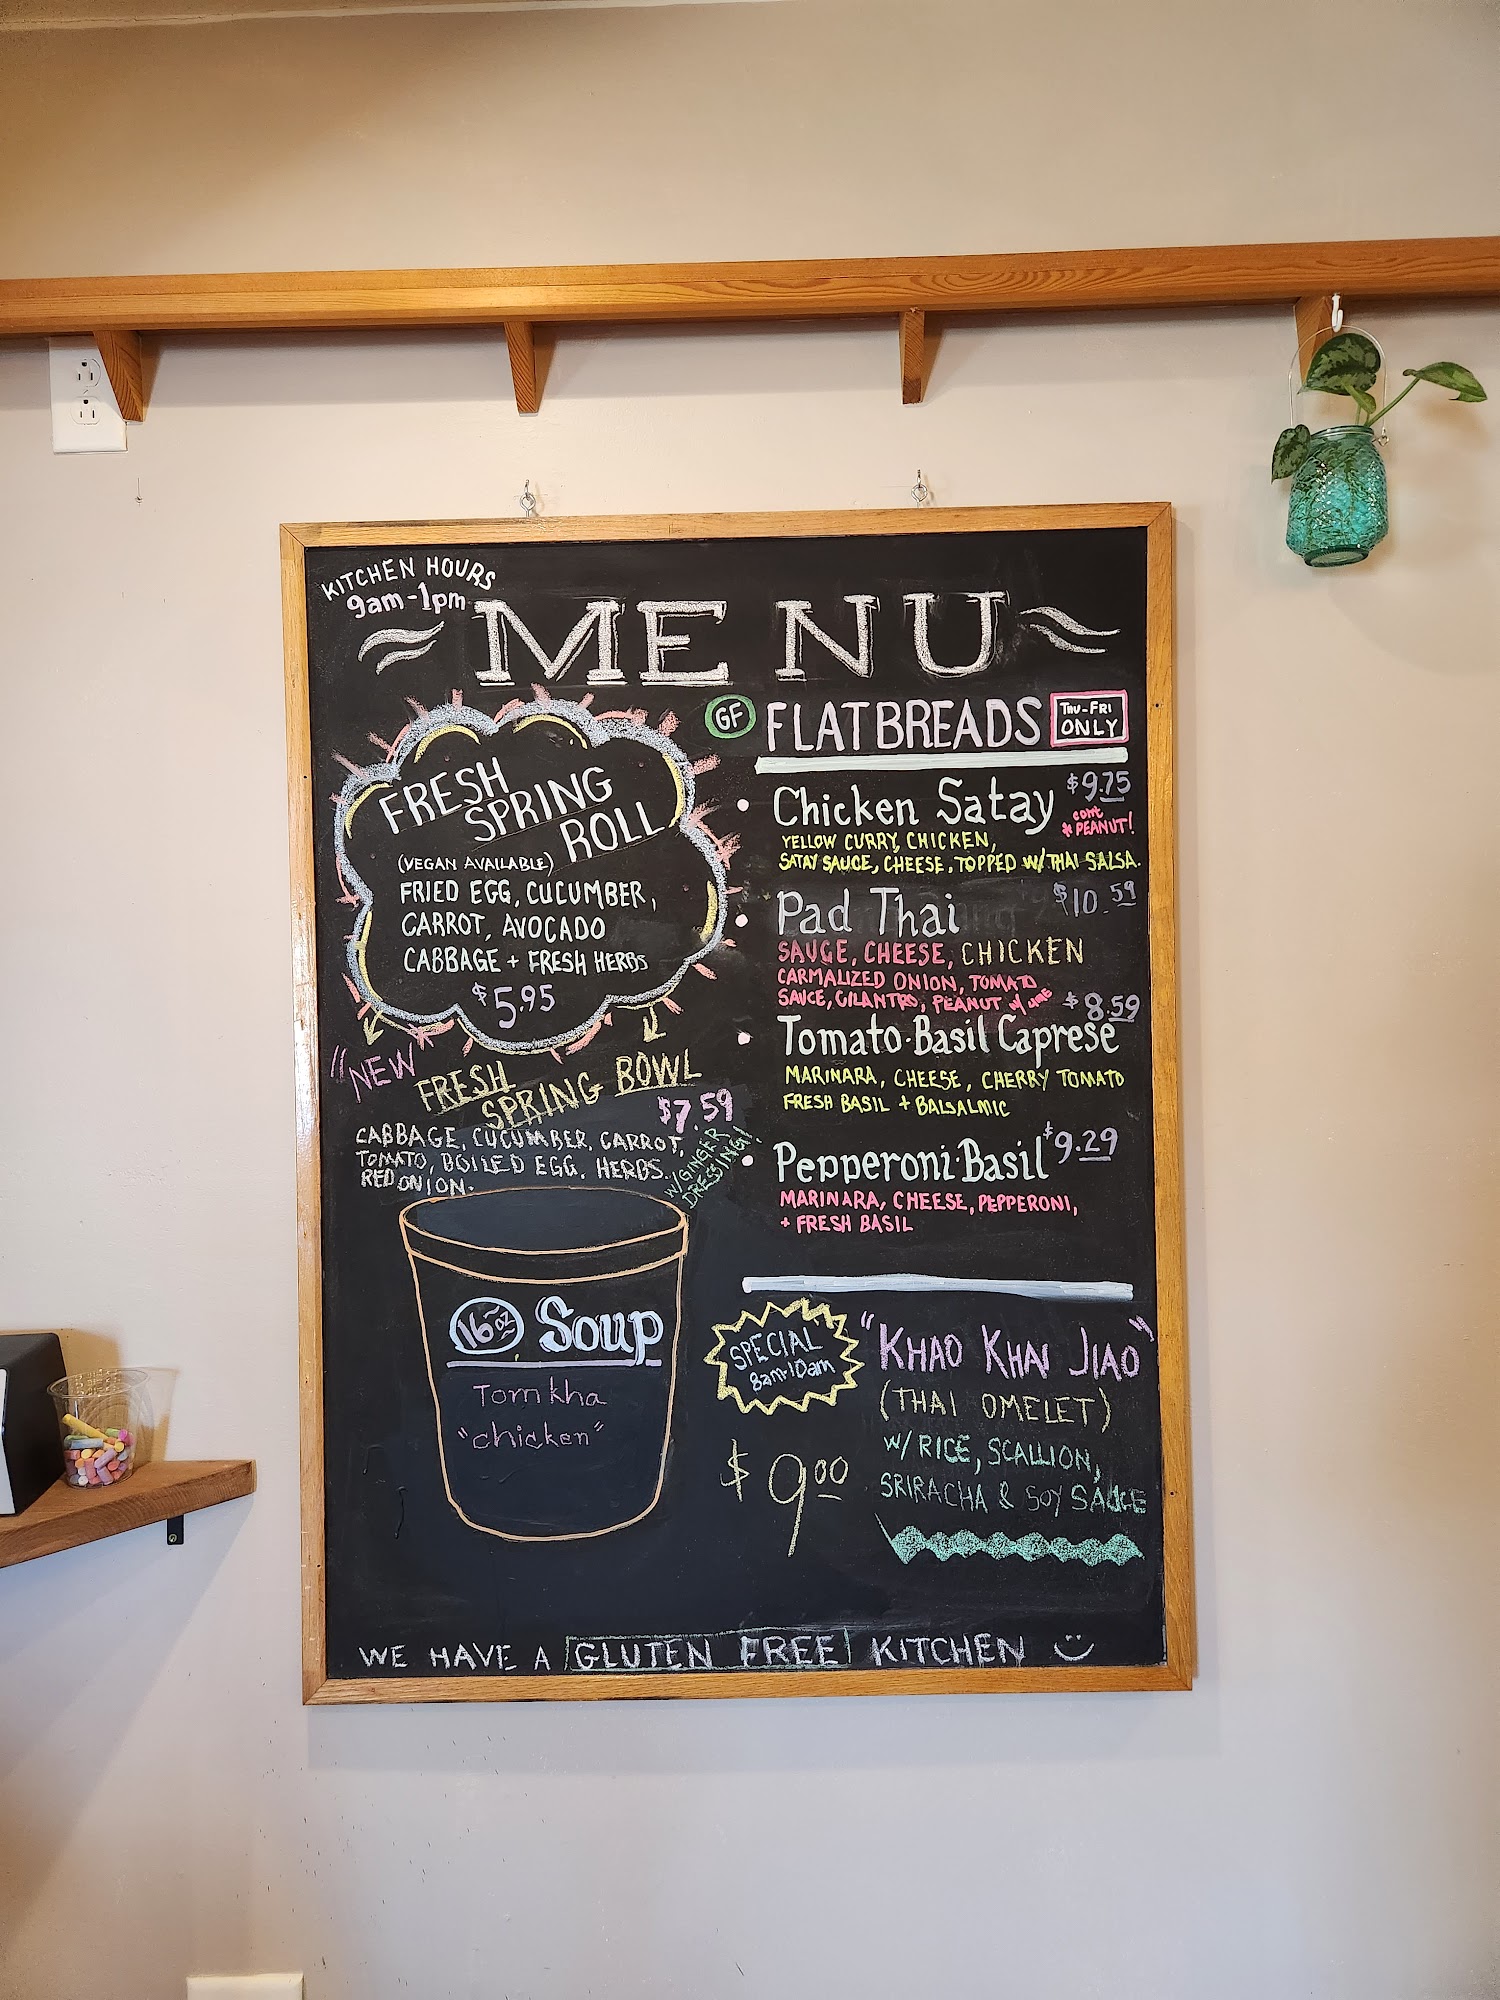 KITCHEN HOURS
9am-1pm
MENU
FRESH
SPRING
ROLL
(VEGAN AVAILABLE)
FRIED EGG, CUCUMBER,
CARROT, AVOCADO
CABBAGE + FRESH HERBS
$5.95
"NEW
FRESH
SPRING BOWL
$7.59
CABBAGE, CUCUMBER, CARROT,
TOMATO, BOILED EGG, HERBS.
RED ONION.
W/GINGER
DRESSING!
16oz Soup
Tom kha
"chicken"
GF FLATBREADS THU-FRI
ONLY
Chicken Satay $9.75
* PEANUT!
YELLOW CURRY, CHICKEN,
SATAY SAUCE, CHEESE, TOPPED W/ THAI SALSA.
Pad Thai $10.59
SAUCE, CHEESE, CHICKEN
CARMALIZED ONION, TOMATO
SAUCE, CILANTRO, PEANUT w/ LIME
Tomato·Basil Caprese $8.59
MARINARA, CHEESE, CHERRY TOMATO
FRESH BASIL + BALSALMIC
Pepperoni·Basil $9.29
MARINARA, CHEESE, PEPPERONI,
+ FRESH BASIL
SPECIAL
8am-10am
"KHAO KHAI JIAO"
(THAI OMELET)
W/ RICE, SCALLION,
SRIRACHA & SOY SAUCE
$9.00
WE HAVE A GLUTEN FREE KITCHEN